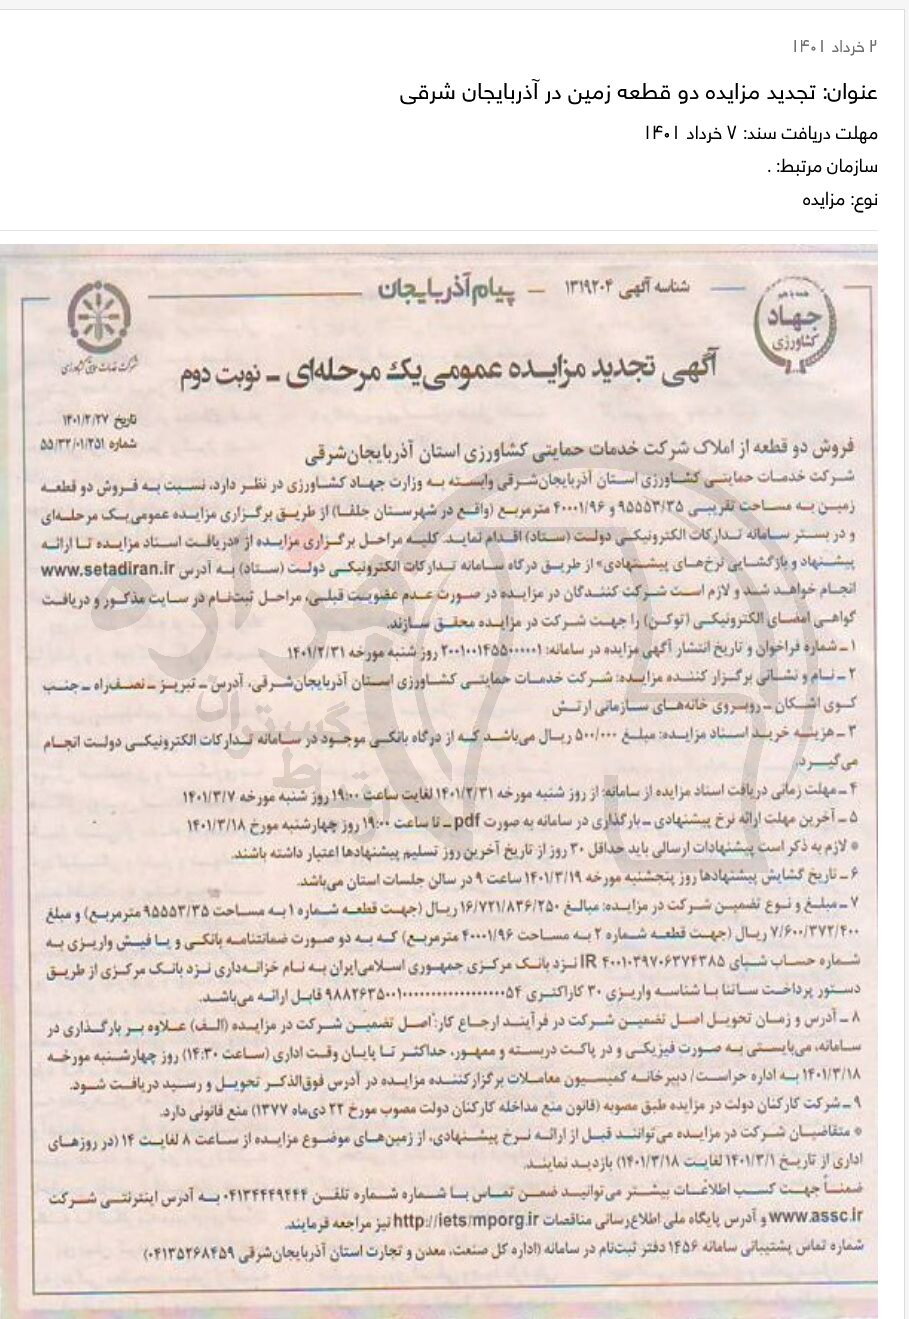 ۲ خرداد ۱۴۰۱
عنوان: تجدید مزایده دو قطعه زمین در آذربایجان شرقی
مهلت دریافت سند: ۷ خرداد ۱۴۰۱
سازمان مرتبط: .
نوع: مزایده
شناسه آگهی ۱۳۱۹۲۰۴ – پیام آذربایجان
جهاد
کشاورزی
آگهی تجدید مزایده عمومی یک مرحله‌ای – نوبت دوم
تاریخ ۱۴۰۱/۲/۲۷
شماره ۵۵/۳۲/۰۱/۲۵۱
فروش دو قطعه از املاک شرکت خدمات حمایتی کشاورزی استان آذربایجان‌شرقی
شرکت خدمات حمایتی کشاورزی استان آذربایجان‌شرقی وابسته به وزارت جهاد کشاورزی در نظر دارد، نسبت به فروش دو قطعه
زمین به مساحت تقریبی ۹۵۵۵۳/۳۵ و ۴۰۰۰۱/۹۶ مترمربع (واقع در شهرستان جلفا) از طریق برگزاری مزایده عمومی یک مرحله‌ای
و در بستر سامانه تدارکات الکترونیکی دولت (ستاد) اقدام نماید. کلیه مراحل برگزاری مزایده از «دریافت اسناد مزایده تا ارائه
پیشنهاد و بازگشایی نرخ‌های پیشنهادی» از طریق درگاه سامانه تدارکات الکترونیکی دولت (ستاد) به آدرس www.setadiran.ir
انجام خواهد شد و لازم است شرکت کنندگان در مزایده در صورت عدم عضویت قبلی، مراحل ثبت‌نام در سایت مذکور و دریافت
گواهی امضای الکترونیکی (توکن) را جهت شرکت در مزایده محقق سازند.
۱ـ شماره فراخوان و تاریخ انتشار آگهی مزایده در سامانه: ۲۰۰۱۰۰۱۴۵۵۰۰۰۰۰۱ روز شنبه مورخه ۱۴۰۱/۲/۳۱
۲ـ نام و نشانی برگزار کننده مزایده: شرکت خدمات حمایتی کشاورزی استان آذربایجان‌شرقی، آدرس ـ تبریز ـ نصف‌راه ـ جنب
کوی اشکان ـ روبروی خانه‌های سازمانی ارتش
۳ـ هزینه خرید اسناد مزایده: مبلغ ۵۰۰/۰۰۰ ریال می‌باشد که از درگاه بانکی موجود در سامانه تدارکات الکترونیکی دولت انجام
می‌گیرد.
۴ـ مهلت زمانی دریافت اسناد مزایده از سامانه: از روز شنبه مورخه ۱۴۰۱/۲/۳۱ لغایت ساعت ۱۹:۰۰ روز شنبه مورخه ۱۴۰۱/۳/۷
۵ـ آخرین مهلت ارائه نرخ پیشنهادی ـ بارگذاری در سامانه به صورت pdf ـ تا ساعت ۱۹:۰۰ روز چهارشنبه مورخ ۱۴۰۱/۳/۱۸
* لازم به ذکر است پیشنهادات ارسالی باید حداقل ۳۰ روز از تاریخ آخرین روز تسلیم پیشنهادها اعتبار داشته باشند.
۶ـ تاریخ گشایش پیشنهادها روز پنجشنبه مورخه ۱۴۰۱/۳/۱۹ ساعت ۹ در سالن جلسات استان می‌باشد.
۷ـ مبلغ و نوع تضمین شرکت در مزایده: مبالغ ۱۶/۷۲۱/۸۳۶/۲۵۰ ریال (جهت قطعه شماره ۱ به مساحت ۹۵۵۵۳/۳۵ مترمربع) و مبلغ
۷/۶۰۰/۳۷۲/۴۰۰ ریال (جهت قطعه شماره ۲ به مساحت ۴۰۰۰۱/۹۶ مترمربع) که به دو صورت ضمانتنامه بانکی و یا فیش واریزی به
شماره حساب شبای IR ۴۰۰۱۰۳۹۷۰۶۳۷۴۳۸۵ نزد بانک مرکزی جمهوری اسلامی‌ایران به نام خزانه‌داری نزد بانک مرکزی از طریق
دستور پرداخت ساتنا با شناسه واریزی ۳۰ کاراکتری قابل ارائه می‌باشد.
۸ـ آدرس و زمان تحویل اصل تضمین شرکت در فرآیند ارجاع کار: اصل تضمین شرکت در مزایده (الف) علاوه بر بارگذاری در
سامانه، می‌بایستی به صورت فیزیکی و در پاکت دربسته و ممهور، حداکثر تا پایان وقت اداری (ساعت ۱۴:۳۰) روز چهارشنبه مورخه
۱۴۰۱/۳/۱۸ به اداره حراست/ دبیرخانه کمیسیون معاملات برگزارکننده مزایده در آدرس فوق‌الذکر تحویل و رسید دریافت شود.
۹ـ شرکت کارکنان دولت در مزایده طبق مصوبه (قانون منع مداخله کارکنان دولت مصوب مورخ ۲۲ دی‌ماه ۱۳۷۷) منع قانونی دارد.
* متقاضیان شرکت در مزایده می‌توانند قبل از ارائه نرخ پیشنهادی، از زمین‌های موضوع مزایده از ساعت ۸ لغایت ۱۴ (در روزهای
اداری از تاریخ ۱۴۰۱/۳/۱ لغایت ۱۴۰۱/۳/۱۸) بازدید نمایند.
ضمناً جهت کسب اطلاعات بیشتر می‌توانید ضمن تماس با شماره شماره تلفن ۰۴۱۳۴۴۴۹۴۴۴ به آدرس اینترنتی شرکت
www.assc.ir و آدرس پایگاه ملی اطلاع‌رسانی مناقصات http://iets/mporg.ir نیز مراجعه فرمایند.
شماره تماس پشتیبانی سامانه ۱۴۵۶ دفتر ثبت‌نام در سامانه (اداره کل صنعت، معدن و تجارت استان آذربایجان‌شرقی ۰۴۱۳۵۲۶۸۴۵۹)